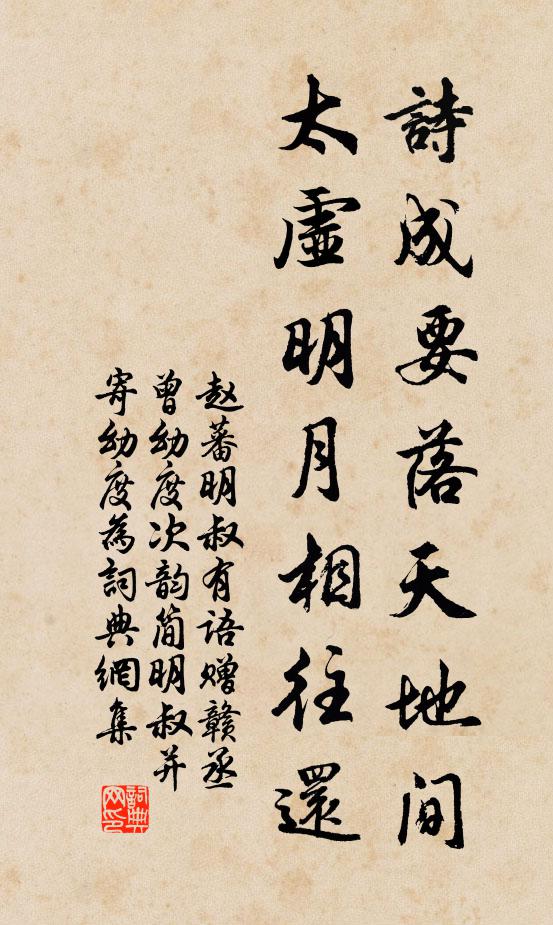 詩成要落天地间
太虛明月相往還
赵蕃明叔有语赠赣丞
曾幼度次韵简明叔并
寄幼度為詞典網集
詞典
网印